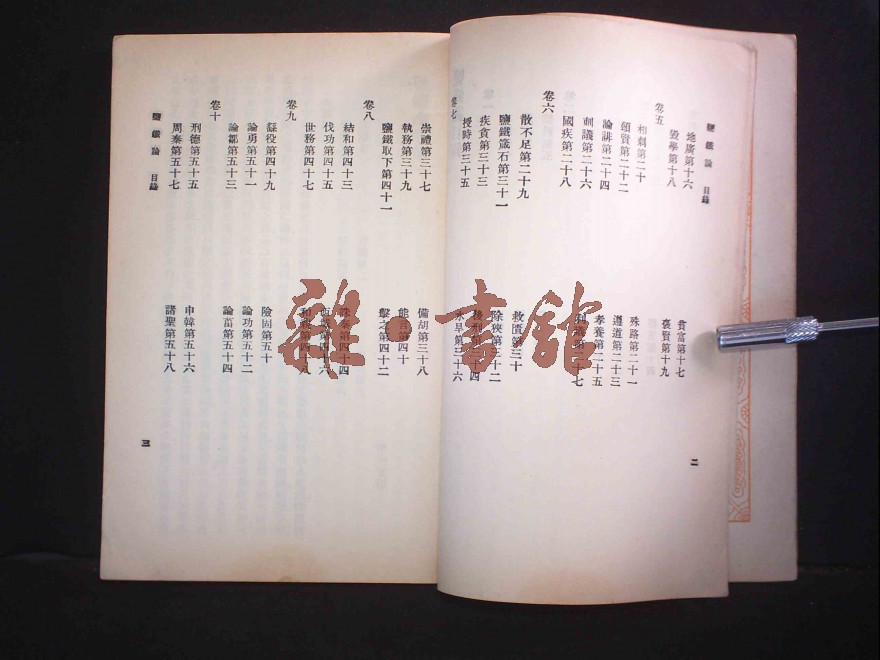 鹽鐵論 目錄
地廣第十六 貧富第十七
毀學第十八 褒賢第十九
卷五
相刺第二十 殊路第二十一
頌賢第二十二 遵道第二十三
論誹第二十四 孝養第二十五
刺議第二十六 利議第二十七
國疾第二十八
卷六
散不足第二十九 救匱第三十
鹽鐵箴石第三十一 除狹第三十二
疾貪第三十三 後刑第三十四
授時第三十五 水旱第三十六
卷七
二
崇禮第三十七 備胡第三十八
執務第三十九 能言第四十
鹽鐵取下第四十一 擊之第四十二
卷八
結和第四十三 誅秦第四十四
伐功第四十五 西域第四十六
世務第四十七 和親第四十八
卷九
繇役第四十九 險固第五十
論勇第五十一 論功第五十二
論鄒第五十三 論菑第五十四
卷十
刑德第五十五 申韓第五十六
周秦第五十七 諸聖第五十八
鹽鐵論 目錄
三
雜·書館